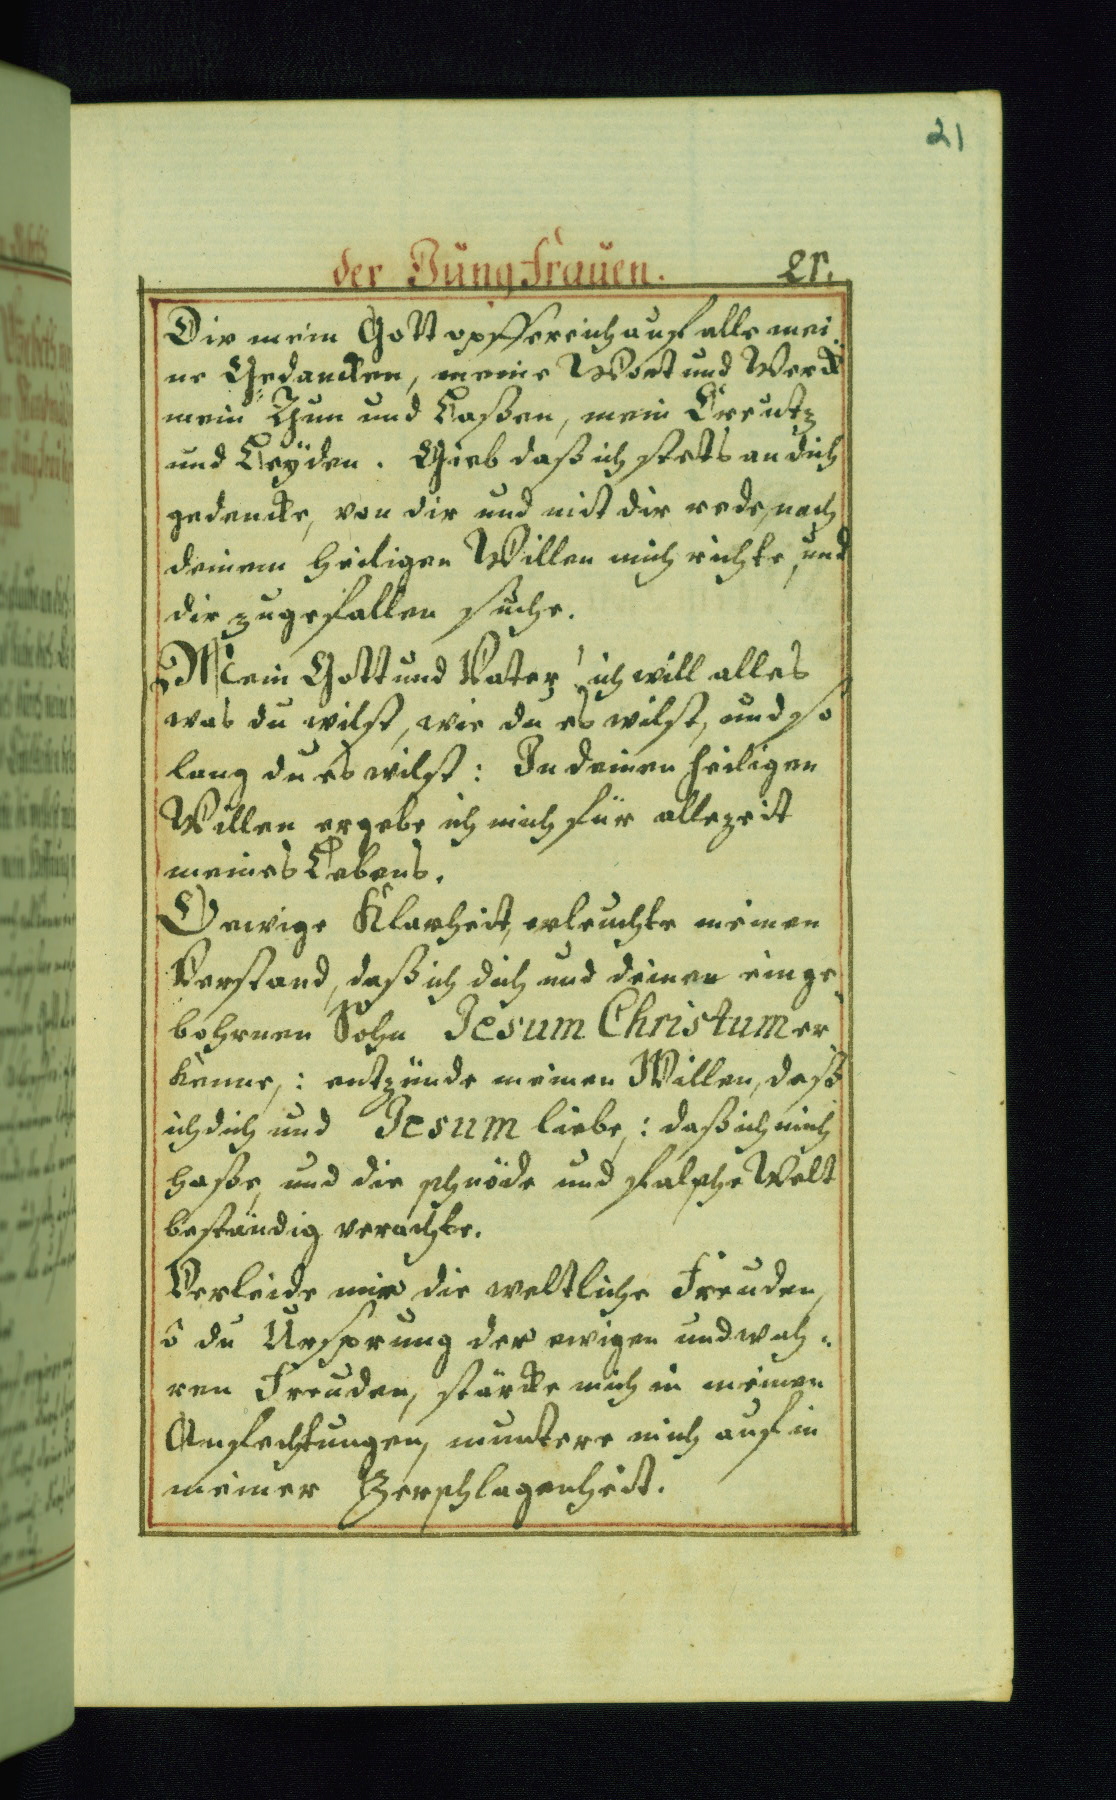 21
der Jungfrauen. 21.
Dir mein Gott opffere ich auch alle mei
ne Gedancken, meine Wort und Werck
mein Thun und Laßen, mein Creutz
und Leÿden. Gieb daß ich stets an dich
gedencke, von dir und mit dir rede, nach
deinem heiligen Willen mich richte, und
dir zugefallen suche.
Mein Gott und Vater! ich will alles
was du wilst, wie du es wilst, und so
lang du es wilst: In deinen heiligen
Willen ergebe ich mich für allezeit
meines Lebens.
O ewige Klarheit, erleuchte meinen
Verstand, daß ich dich und deinen einge
bohrnen Sohn Jesum Christum er
kenne,: entzünde meinen Willen, daß
ich dich und Jesum liebe,: daß ich mich
haße, und die schnöde und falsche Welt
beständig verachte.
Verleide mir die weltliche Freuden,
ô du Ursprung der ewigen und wah:
ren Freuden, stärcke mich in meinen
Anfechtungen, muntere mich auf in
meiner Zerschlagenheit.